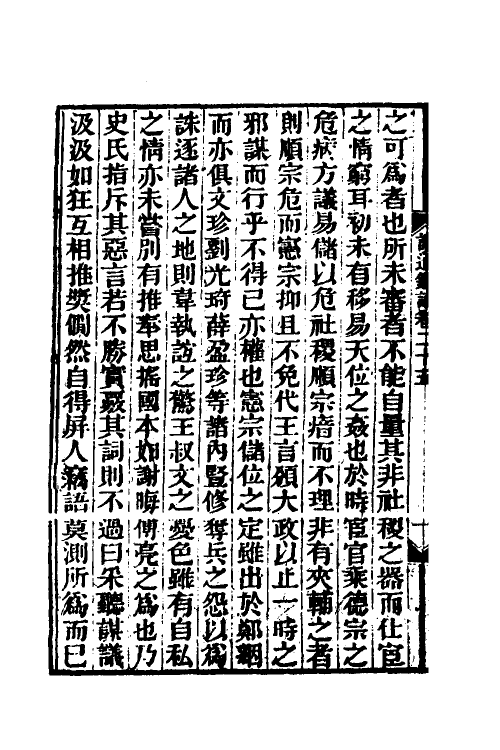 之可爲者也所未審者不能自量其非社稷之器而仕宦
之情窮耳初未有移易天位之姦也於時宦官乘德宗之
危病方議易儲以危社稷順宗瘖而不理非有夾輔之者
則順宗危而憲宗抑且不免代王言頒大政以止一時之
邪謀而行乎不得已亦權也憲宗儲位之定雖出於鄭絪
而亦俱文珍劉光琦薛盈珍等諸內豎修奪兵之怨以爲
誅逐諸人之地則韋執誼之驚王叔文之憂色雖有自私
之情亦未嘗別有推奉思搖國本如謝晦傅亮之爲也乃
史氏指斥其惡言若不勝實覈其詞則不過曰采聽謀議
汲汲如狂互相推獎僩然自得屏人竊語莫測所爲而已
讀通鑑論卷二十五